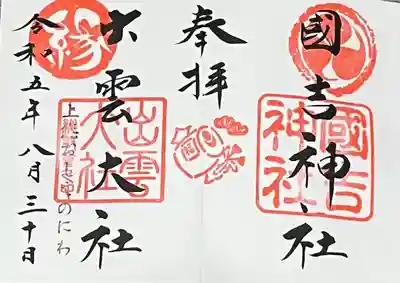 國吉神社
國吉神社
奉拝
縁
出雲大社
出雲大社
上総出雲のにわ
令和五年八月三十日